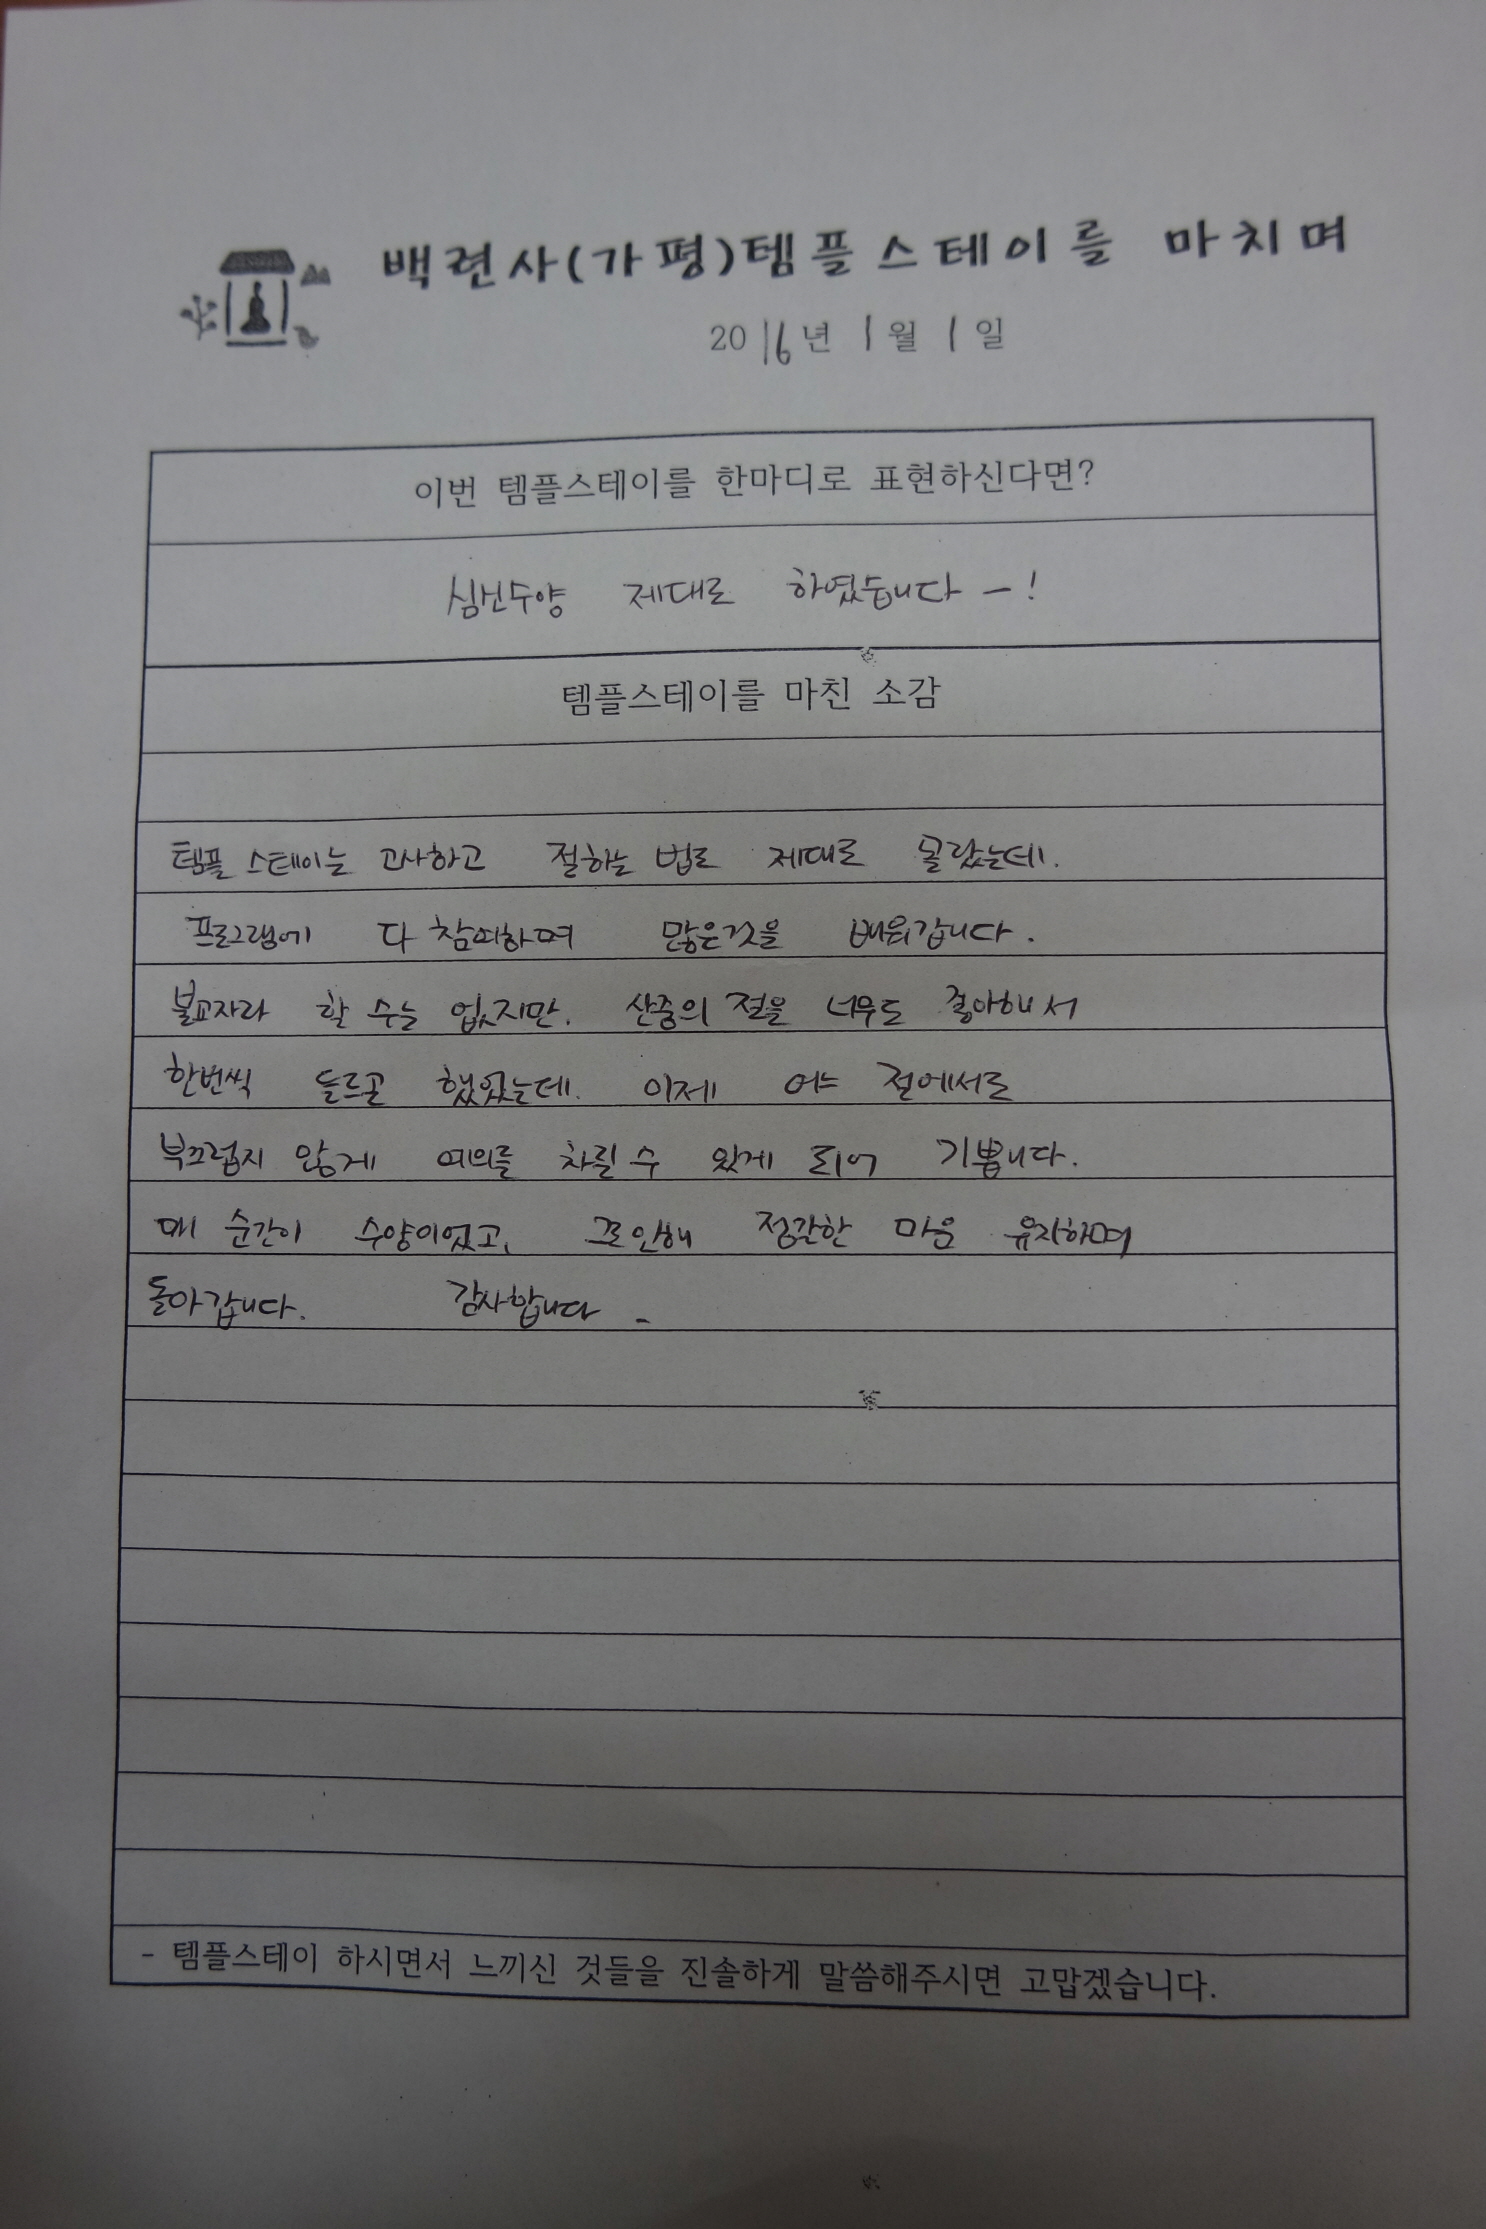 백련사(가평)템플스테이를 마치며
2016년 1월 1일
이번 템플스테이를 한마디로 표현하신다면?
심신수양 제대로 하였습니다 - !
템플스테이를 마친 소감
템플스테이는 고사하고 절하는 법도 제대로 몰랐는데.
프로그램에 다 참여하며 많은것을 배워갑니다.
불교자라 할 수는 없지만. 산중의 절을 너무도 좋아해서
한번씩 들르곤 했었는데. 이제 어느 절에서도
부끄럽지 않게 예의를 차릴 수 있게 되어 기쁩니다.
매 순간이 수양이었고, 그로인해 정갈한 마음 유지하며
돌아갑니다. 감사합니다 -
- 템플스테이 하시면서 느끼신 것들을 진솔하게 말씀해주시면 고맙겠습니다.